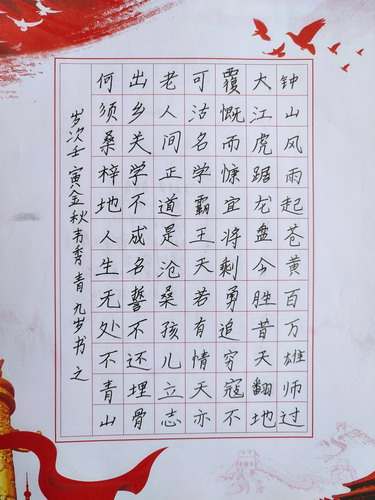 钟山风雨起苍黄百万雄师过
大江虎踞龙盘今胜昔天翻地
覆慨而慷宜将剩勇追穷寇不
可沽名学霸王天若有情天亦
老人间正道是沧桑孩儿立志
出乡关学不成名誓不还埋骨
何须桑梓地人生无处不青山
岁次壬寅金秋韦秀青九岁书之